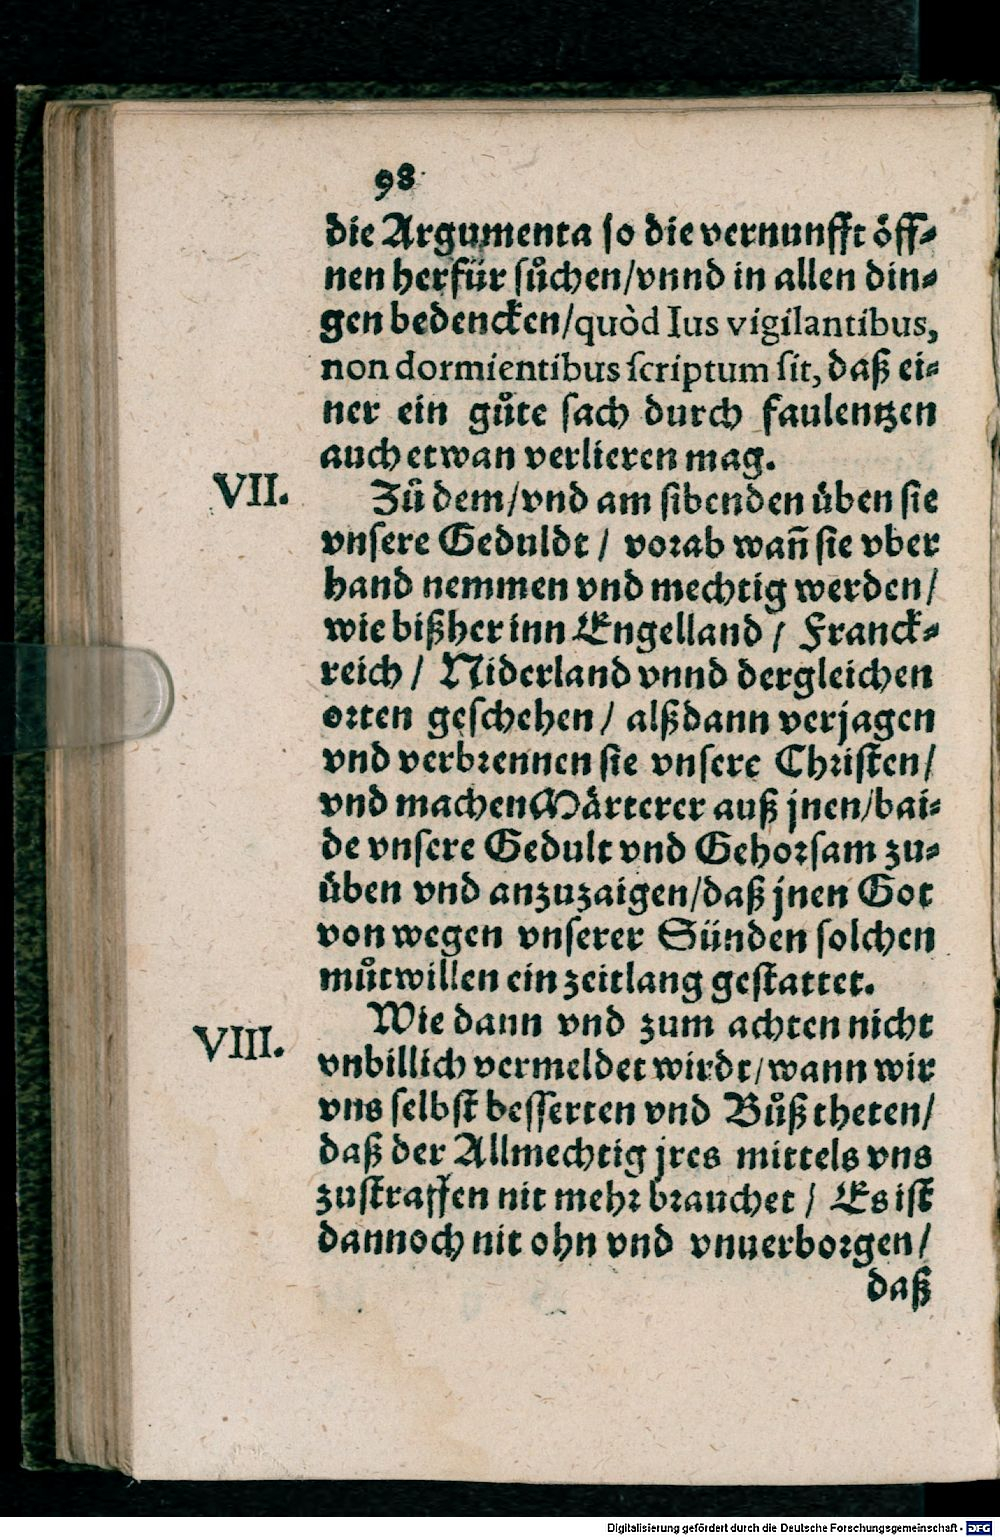 98
die Argumenta so die vernunfft öff⸗
nen herfür sůchen/vnnd in allen din⸗
gen bedencken/quòd Ius vigilantibus,
non dormientibus scriptum sit, daß ei⸗
ner ein gůte sach durch faulentzen
auch etwan verlieren mag.
VII. Zů dem/vnd am sibenden üben sie
vnsere Geduldt / vorab wañ sie vber
hand nemmen vnd mechtig werden/
wie bißher inn Engelland / Franck⸗
reich / Niderland vnnd dergleichen
orten geschehen / alßdann verjagen
vnd verbrennen sie vnsere Christen/
vnd machen Märterer auß jnen/bai⸗
de vnsere Gedult vnd Gehorsam zu⸗
üben vnd anzuzaigen/daß jnen Got
von wegen vnserer Sünden solchen
můtwillen ein zeitlang gestattet.
VIII. Wie dann vnd zum achten nicht
vnbillich vermeldet wirdt/wann wir
vns selbst besserten vnd Bůß theten/
daß der Allmechtig jres mittels vns
zustraffen nit mehr brauchet / Es ist
dannoch nit ohn vnd vnuerborgen/
daß
Digitalisierung gefördert durch die Deutsche Forschungsgemeinschaft - DFG